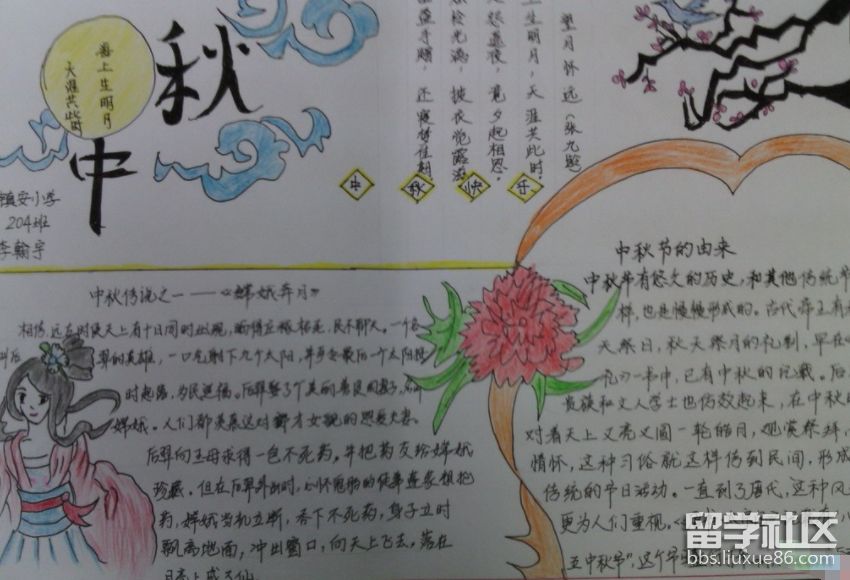 海上生明月
天涯共此时
中秋
镇安小学
204班
李翰宇
望月怀远(张九龄)
上生明月,天涯共此时
怨遥夜,竟夕起相思。
烛怜光满,披衣觉露滋
盈手赠,还寝梦佳期
中秋快乐
中秋传说之一——《嫦娥奔月》
相传,远古时候天上有十日同时出现,晒得庄稼枯死,民不聊生。一个名
叫后羿的英雄,一口气射下九个太阳,并
最后一个太阳按
时起落,为民造福。后羿娶了个美丽善良的妻子,
嫦娥。人们都羡慕这对郎才女貌的恩爱夫妻。
后羿向王母求得一包不死药。并把药交给嫦娥
珍藏。但在后羿外出时,心怀鬼胎的徒弟逢蒙想抢
药,嫦娥当机立断,吞下不死药,身子立时
飘离地面,冲出窗口,向天上飞去,落在
月亮上成了仙
中秋节的由来
中秋节有悠久的历史,和其他传统节
样,也是慢慢形成的。古代帝王有春
天祭日,秋天祭月的礼制,早在《
礼》一书中,已有中秋的记载。后
贵族和文人学士也仿效起来,在中秋时
对着天上又亮又圆一轮皓月,观赏祭拜,
情怀,这种习俗就这样传到民间,形成
传统的节日活动。一直到了唐代,这种风
更为人们重视。
五中秋节",这个节
留学社区
bbs.liuxue86.com